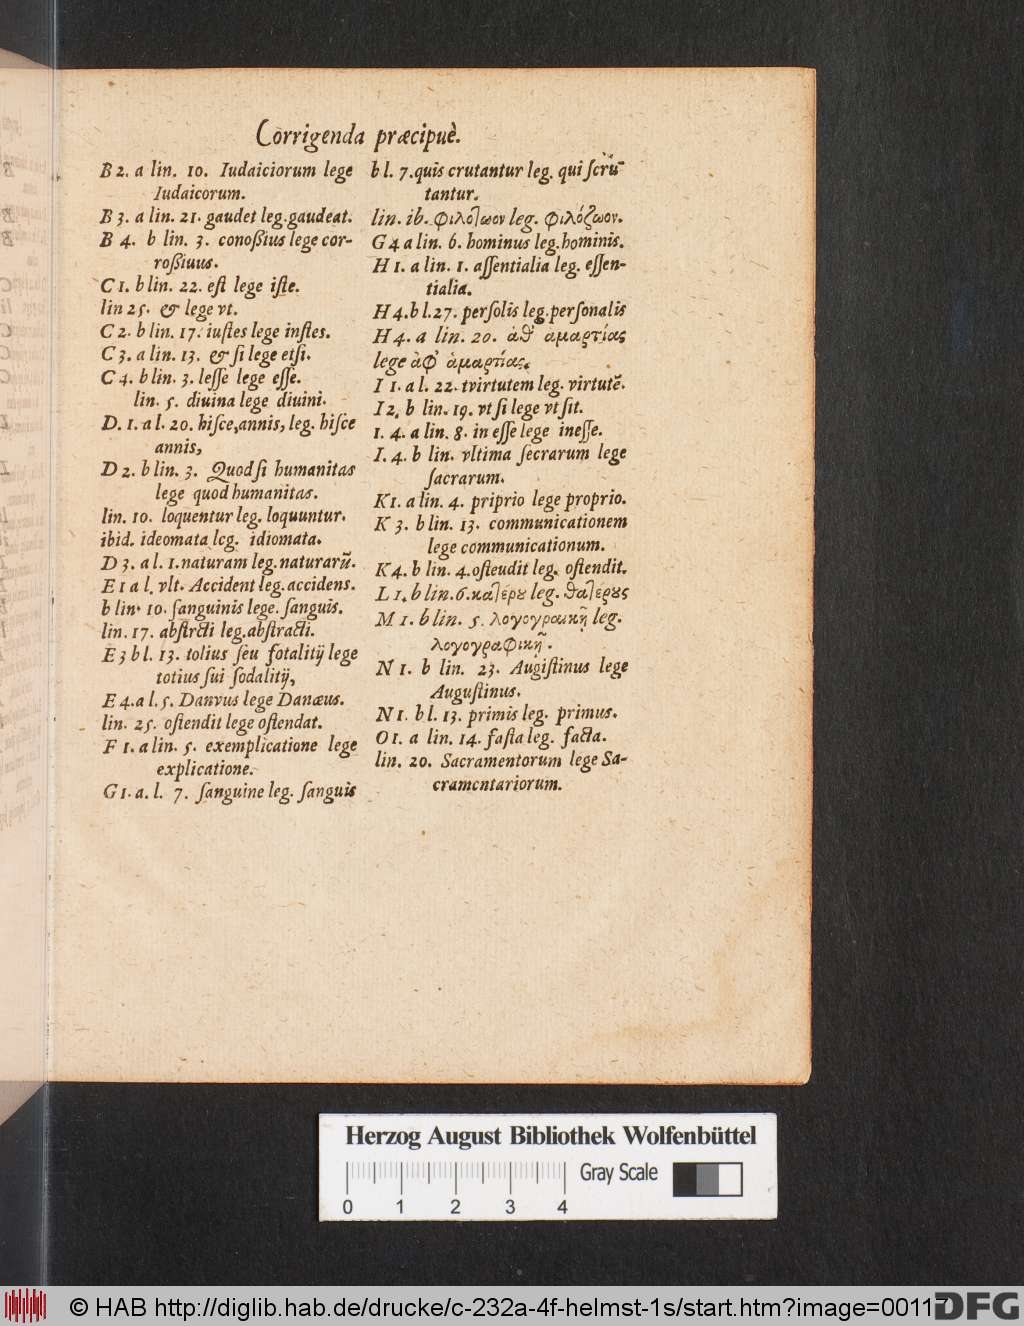 Corrigenda præcipuè.
B 2. a lin. 10. Iudaiciorum lege
Iudaicorum.
B 3. a lin. 21. gaudet leg. gaudeat.
B 4. b lin. 3. conoßius lege cor-
roßiuus.
C 1. b lin. 22. eſt lege iſte.
lin 25. & lege vt.
C 2. b lin. 17. iuſtes lege inſtes.
C 3. a lin. 13. & ſi lege etſi.
C 4. b lin. 3. leſſe lege eſſe.
lin. 5. diuina lege diuini.
D. 1. a l. 20. hiſce, annis, leg. hiſce
annis,
D 2. b lin. 3. Quod ſi humanitas
lege quod humanitas.
lin. 10. loquentur leg. loquuntur.
ibid. ideomata leg. idiomata.
D 3. a l. 1. naturam leg. naturarũ.
E 1 a l. vlt. Accident leg. accidens.
b lin. 10. ſanguinis lege. ſanguis.
lin. 17. abſtrcti leg. abſtracti.
E 3 b l. 13. tolius ſeu fotalitij lege
totius ſui ſodalitij,
E 4. a l. 5. Danvus lege Danæus.
lin. 25. oſtendit lege oſtendat.
F 1. a lin. 5. exemplicatione lege
explicatione.
G 1. a. l. 7. ſanguine leg. ſanguis
b l. 7. quis crutantur leg. qui ſcrũ
tantur.
lin. ib. leg. φιλόζωον.
G 4 a lin. 6. hominus leg. hominis.
H 1. a lin. 1. aſſentialia leg. eſſen-
tialia.
H 4. b l. 27. perſolis leg. perſonalis
H 4. a lin. 20. ἀθ’ αμαρτίας
lege ἀφ’ ἁμαρτίας.
I 1. a l. 22. tvirtutem leg. virtutẽ.
I 2. b lin. 19. vt ſi lege vt ſit.
I. 4. a lin. 8. in eſſe lege ineſſe.
I. 4. b lin. vltima ſecrarum lege
ſacrarum.
K 1. a lin. 4. priprio lege proprio.
K 3. b lin. 13. communicationem
lege communicationum.
K 4. b lin. 4. oſteudit leg. oſtendit.
L 1. b lin. 6. κατέρου leg. θατέρους
M 1. b lin. 5. leg.
λογογραφικῇ.
N 1. b lin. 23. Augiſtinus lege
Auguſtinus.
N 1. b l. 13. primis leg. primus.
O 1. a lin. 14. faſta leg. facta.
lin. 20. Sacramentorum lege Sa-
cramentariorum.
Herzog August Bibliothek Wolfenbüttel
Gray Scale
0 1 2 3 4
© HAB http://diglib.hab.de/drucke/c-232a-4f-helmst-1s/start.htm?image=00117
DFG